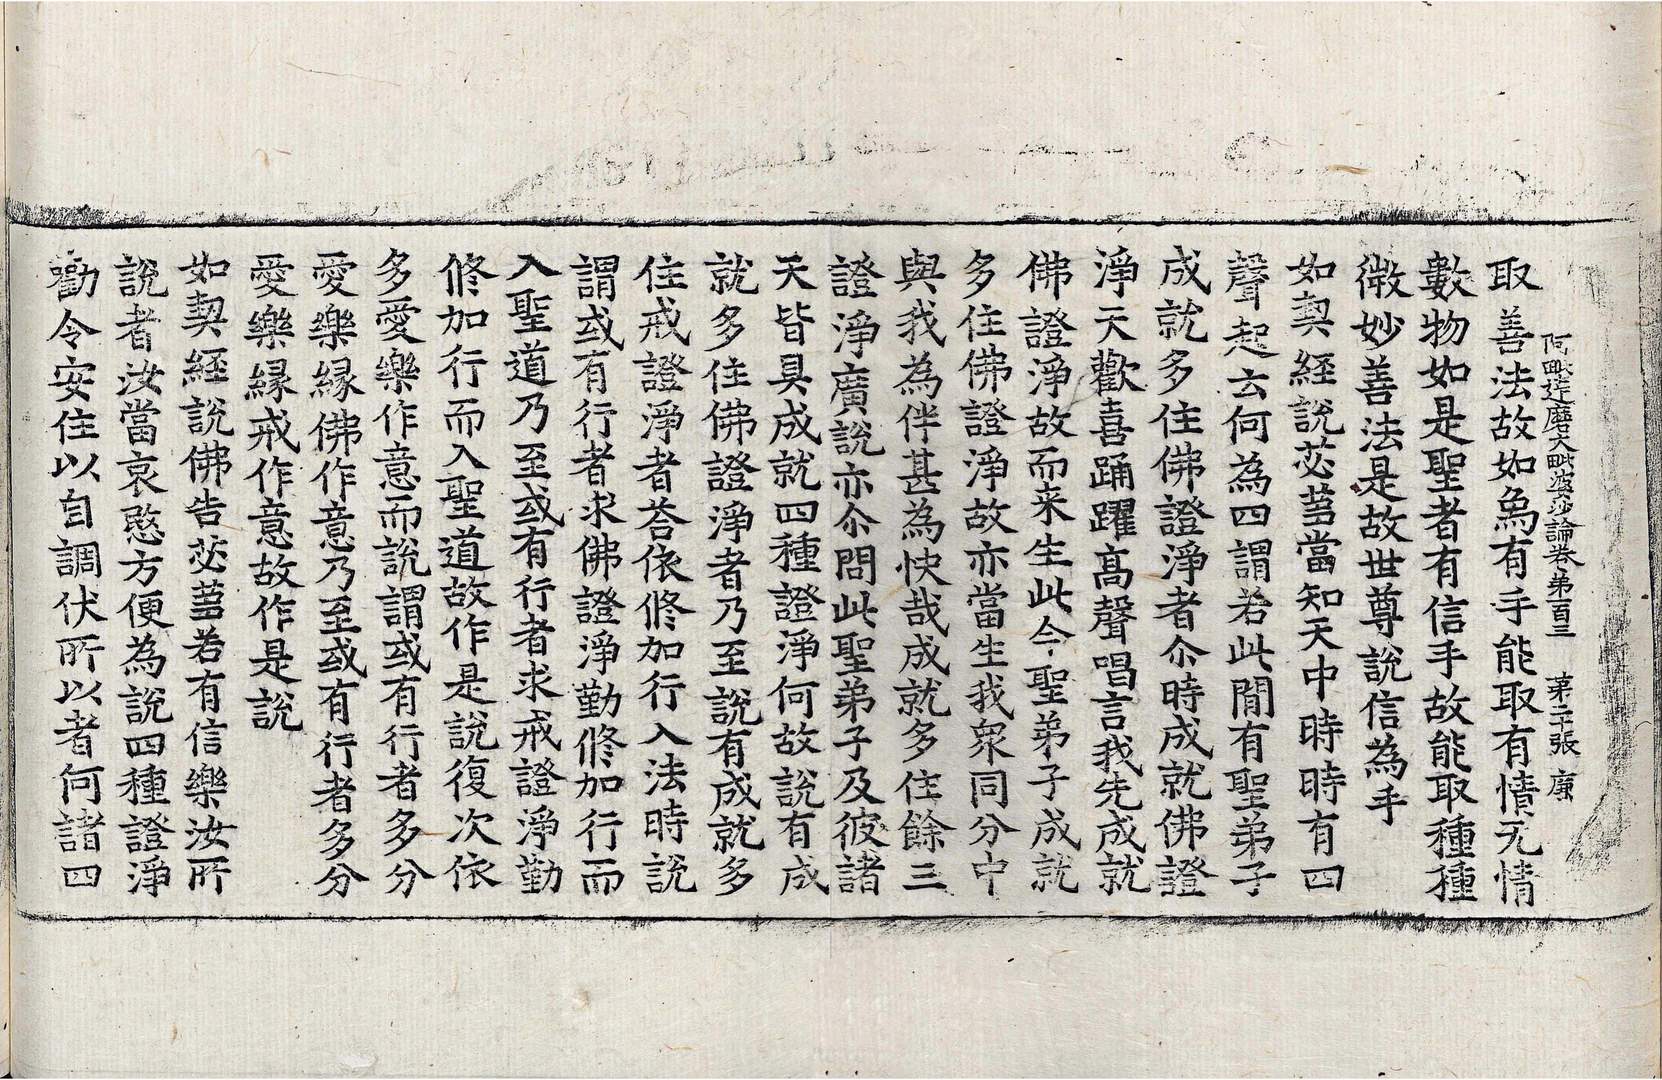 阿毗達磨大毗婆沙論卷第一百三 第二十張 廉
取善法故如爲有手能取有情无情
數物如是聖者有信手故能取種種
微妙善法是故世尊說信為手
如契經說苾蒭當知天中時時有四
聲起云何為四謂若此閒有聖弟子
成就多住佛證淨者尒時成就佛證
淨天歡喜踊躍高聲唱言我先成就
佛證淨故而来生此今聖弟子成就
多住佛證淨故亦當生我衆同分中
與我為伴甚為快哉成就多住餘三
證淨廣說亦尒問此聖弟子及彼諸
天皆具成就四種證淨何故說有成
就多住佛證淨者乃至說有成就多
住戒證淨者荅依修加行入法時說
謂或有行者求佛證淨勤修加行而
入聖道乃至或有行者求戒證淨勤
修加行而入聖道故作是說復次依
多愛樂作意而說謂或有行者多分
愛樂緣佛作意乃至或有行者多分
愛樂緣戒作意故作是說
如契經說佛告苾蒭若有信樂汝所
說者汝當哀愍方便為說四種證淨
勸令安住以自調伏所以者何諸四